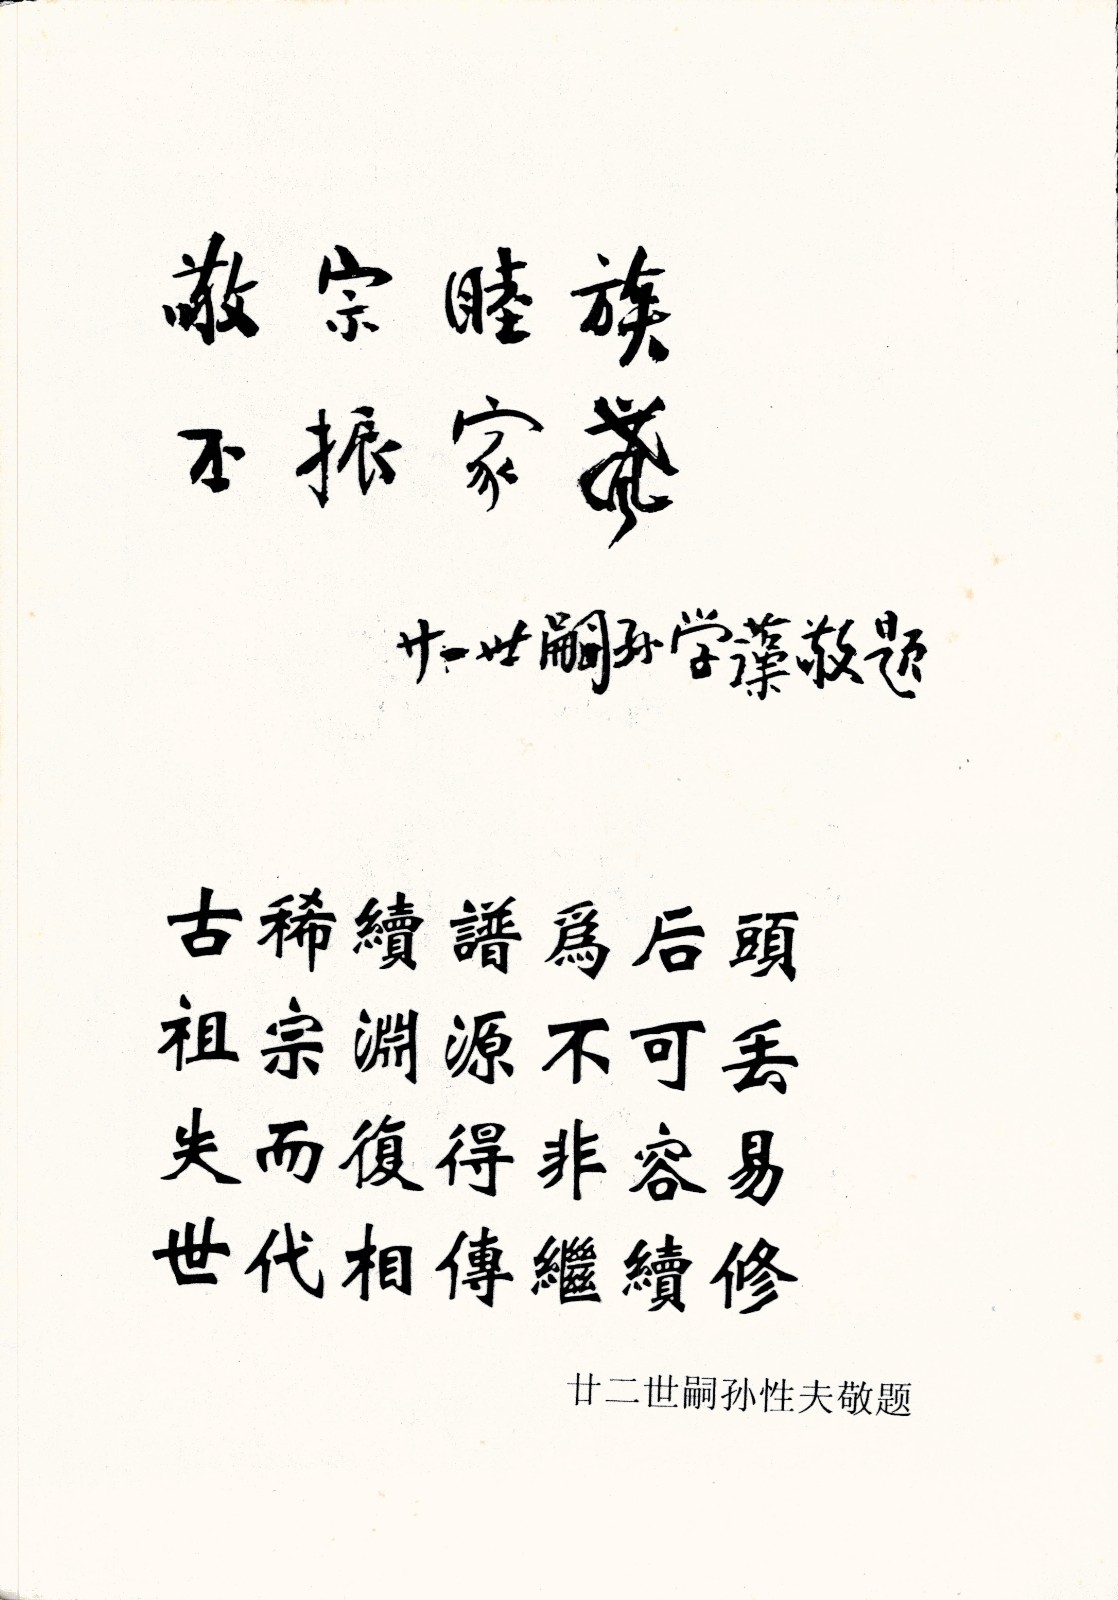 敬宗睦族
丕振家聲
廿一世嗣孙学藻敬题
古稀續譜爲后頭
祖宗淵源不可丢
失而復得非容易
世代相傳繼續修
廿二世嗣孙性夫敬题